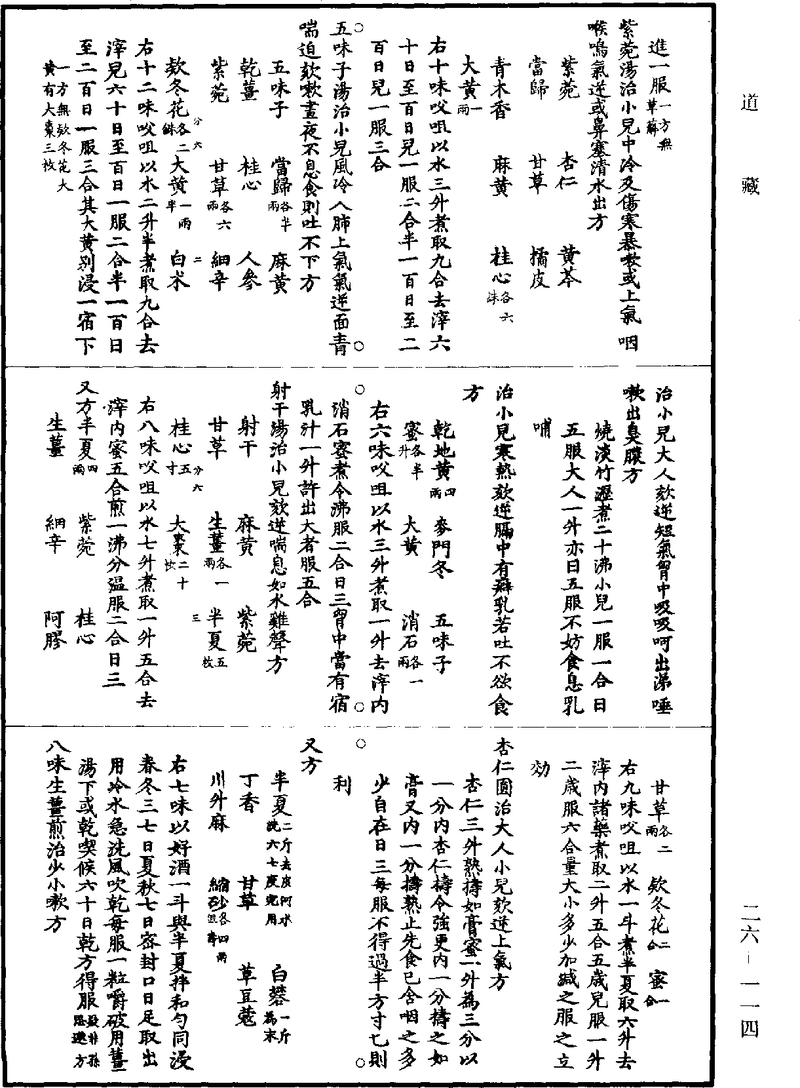 道藏
進一服一方無草蘚
紫菀湯治小兒中冷及傷寒暴嗽或上氣咽
喉鳴氣逆或鼻塞清水出方
紫菀　杏仁　黃芩
當歸　甘草　橘皮
青木香　麻黃　桂心各六銖
大黃一兩
右十味㕮咀以水三升煮取九合去滓六
十日至百日兒一服二合半一百日至二
百日兒一服三合
五味子湯治小兒風冷入肺上氣氣逆面青
喘迫欬嗽晝夜不息食則吐不下方
五味子　當歸各半兩　麻黃
乾薑　桂心　人參
紫菀　甘草各六兩　細辛
分六
欵冬花各二銖　大黃一兩半　白朮　二
右十二味㕮咀以水二升半煮取九合去
滓兒六十日至百日一服二合半一百日
至二百日一服三合其大黃別浸一宿下
一方無欵冬花大
黃有大棗三枚
治小兒大人欬逆短氣胷中吸吸呵出涕唾
嗽出臭膿方
燒淡竹瀝煮二十沸小兒一服一合日
五服大人一升亦日五服不妨食息乳
哺
治小兒寒熱欬逆膈中有癖乳若吐不欲食
方
乾地黃四兩　麥門冬　五味子
蜜各半升　大黃　消石各一兩
右六味㕮咀以水三升煮取一升去滓內
消石蜜煮令沸服二合日三胷中當有宿
乳汁一升許出大者服五合
射干湯治小兒欬逆喘息如水雞聲方
射干　麻黃　紫菀
甘草　生薑各一兩　半夏五枚　三
分六
桂心五寸　大棗二十枚
右八味㕮咀以水七升煮取一升五合去
滓內蜜五合煎一沸分溫服二合日三
又方半夏四兩　紫菀　桂心
生薑　細辛　阿膠
甘草各二兩　欵冬花二合　蜜一合
右九味㕮咀以水一斗煮半夏取六升去
滓內諸藥煮取二升五合五歲兒服一升
二歲服六合量大小多少加減之服之立
効
杏仁圓治大人小兒欬逆上氣方
杏仁三升熟擣如膏蜜一升為三分以
一分內杏仁擣令強更內一分擣之如
膏又內一分擣熟止先食已含咽之多
少自在日三每服不得過半方寸匕則
利
又方
半夏二斤去皮河水洗六七度完用　白礬一斤為末
丁香　甘草　草豆蔻
川升麻　縮砂各四兩麁擣
右七味以好酒一斗與半夏拌和勻同浸
春冬三七日夏秋七日密封口日足取出
用冷水急洗風吹乾每服一粒嚼破用薑
湯下或乾喫候六十日乾方得服疑非孫思邈方
八味生薑煎治少小嗽方
二六－一一四